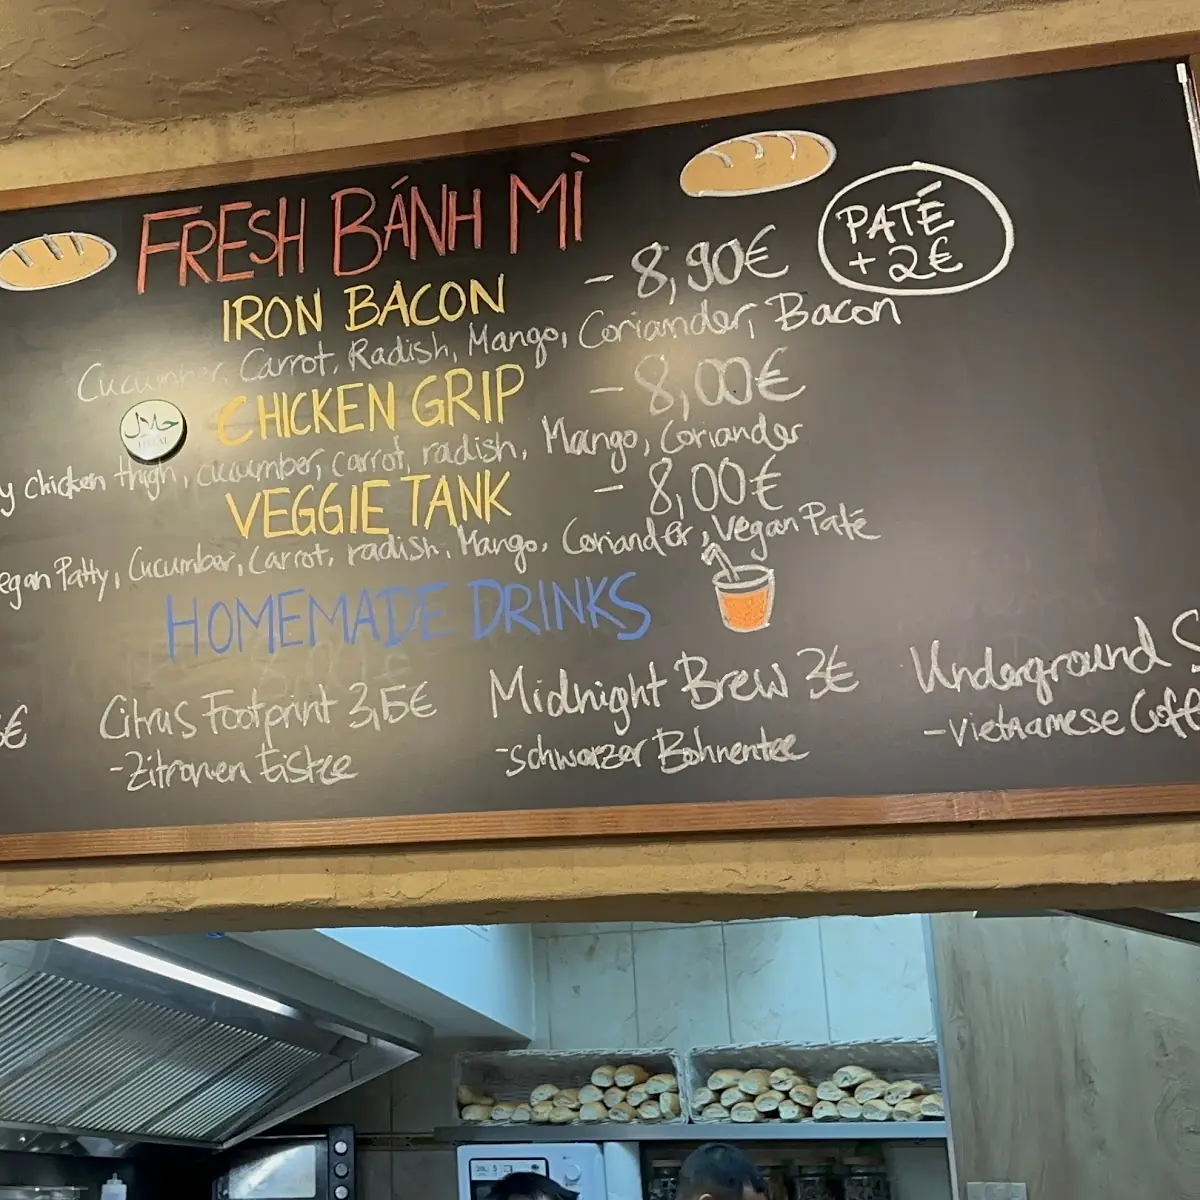 FRESH BÁNH MÌ
PATÉ
+ 2€
IRON BACON - 8,90€
Cucumber, Carrot, Radish, Mango, Coriander, Bacon
حلال
HALAL
CHICKEN GRIP - 8,00€
y chicken thigh, cucumber, carrot, radish, Mango, Coriander
VEGGIE TANK - 8,00€
egan Patty, Cucumber, Carrot, radish, Mango, Coriander, Vegan Paté
HOMEMADE DRINKS
€
Citrus Footprint 3,5€
-Zitronen Eistee
Midnight Brew 3€
-schwarzer Bohnentee
Underground S
-Vietnamese Coff